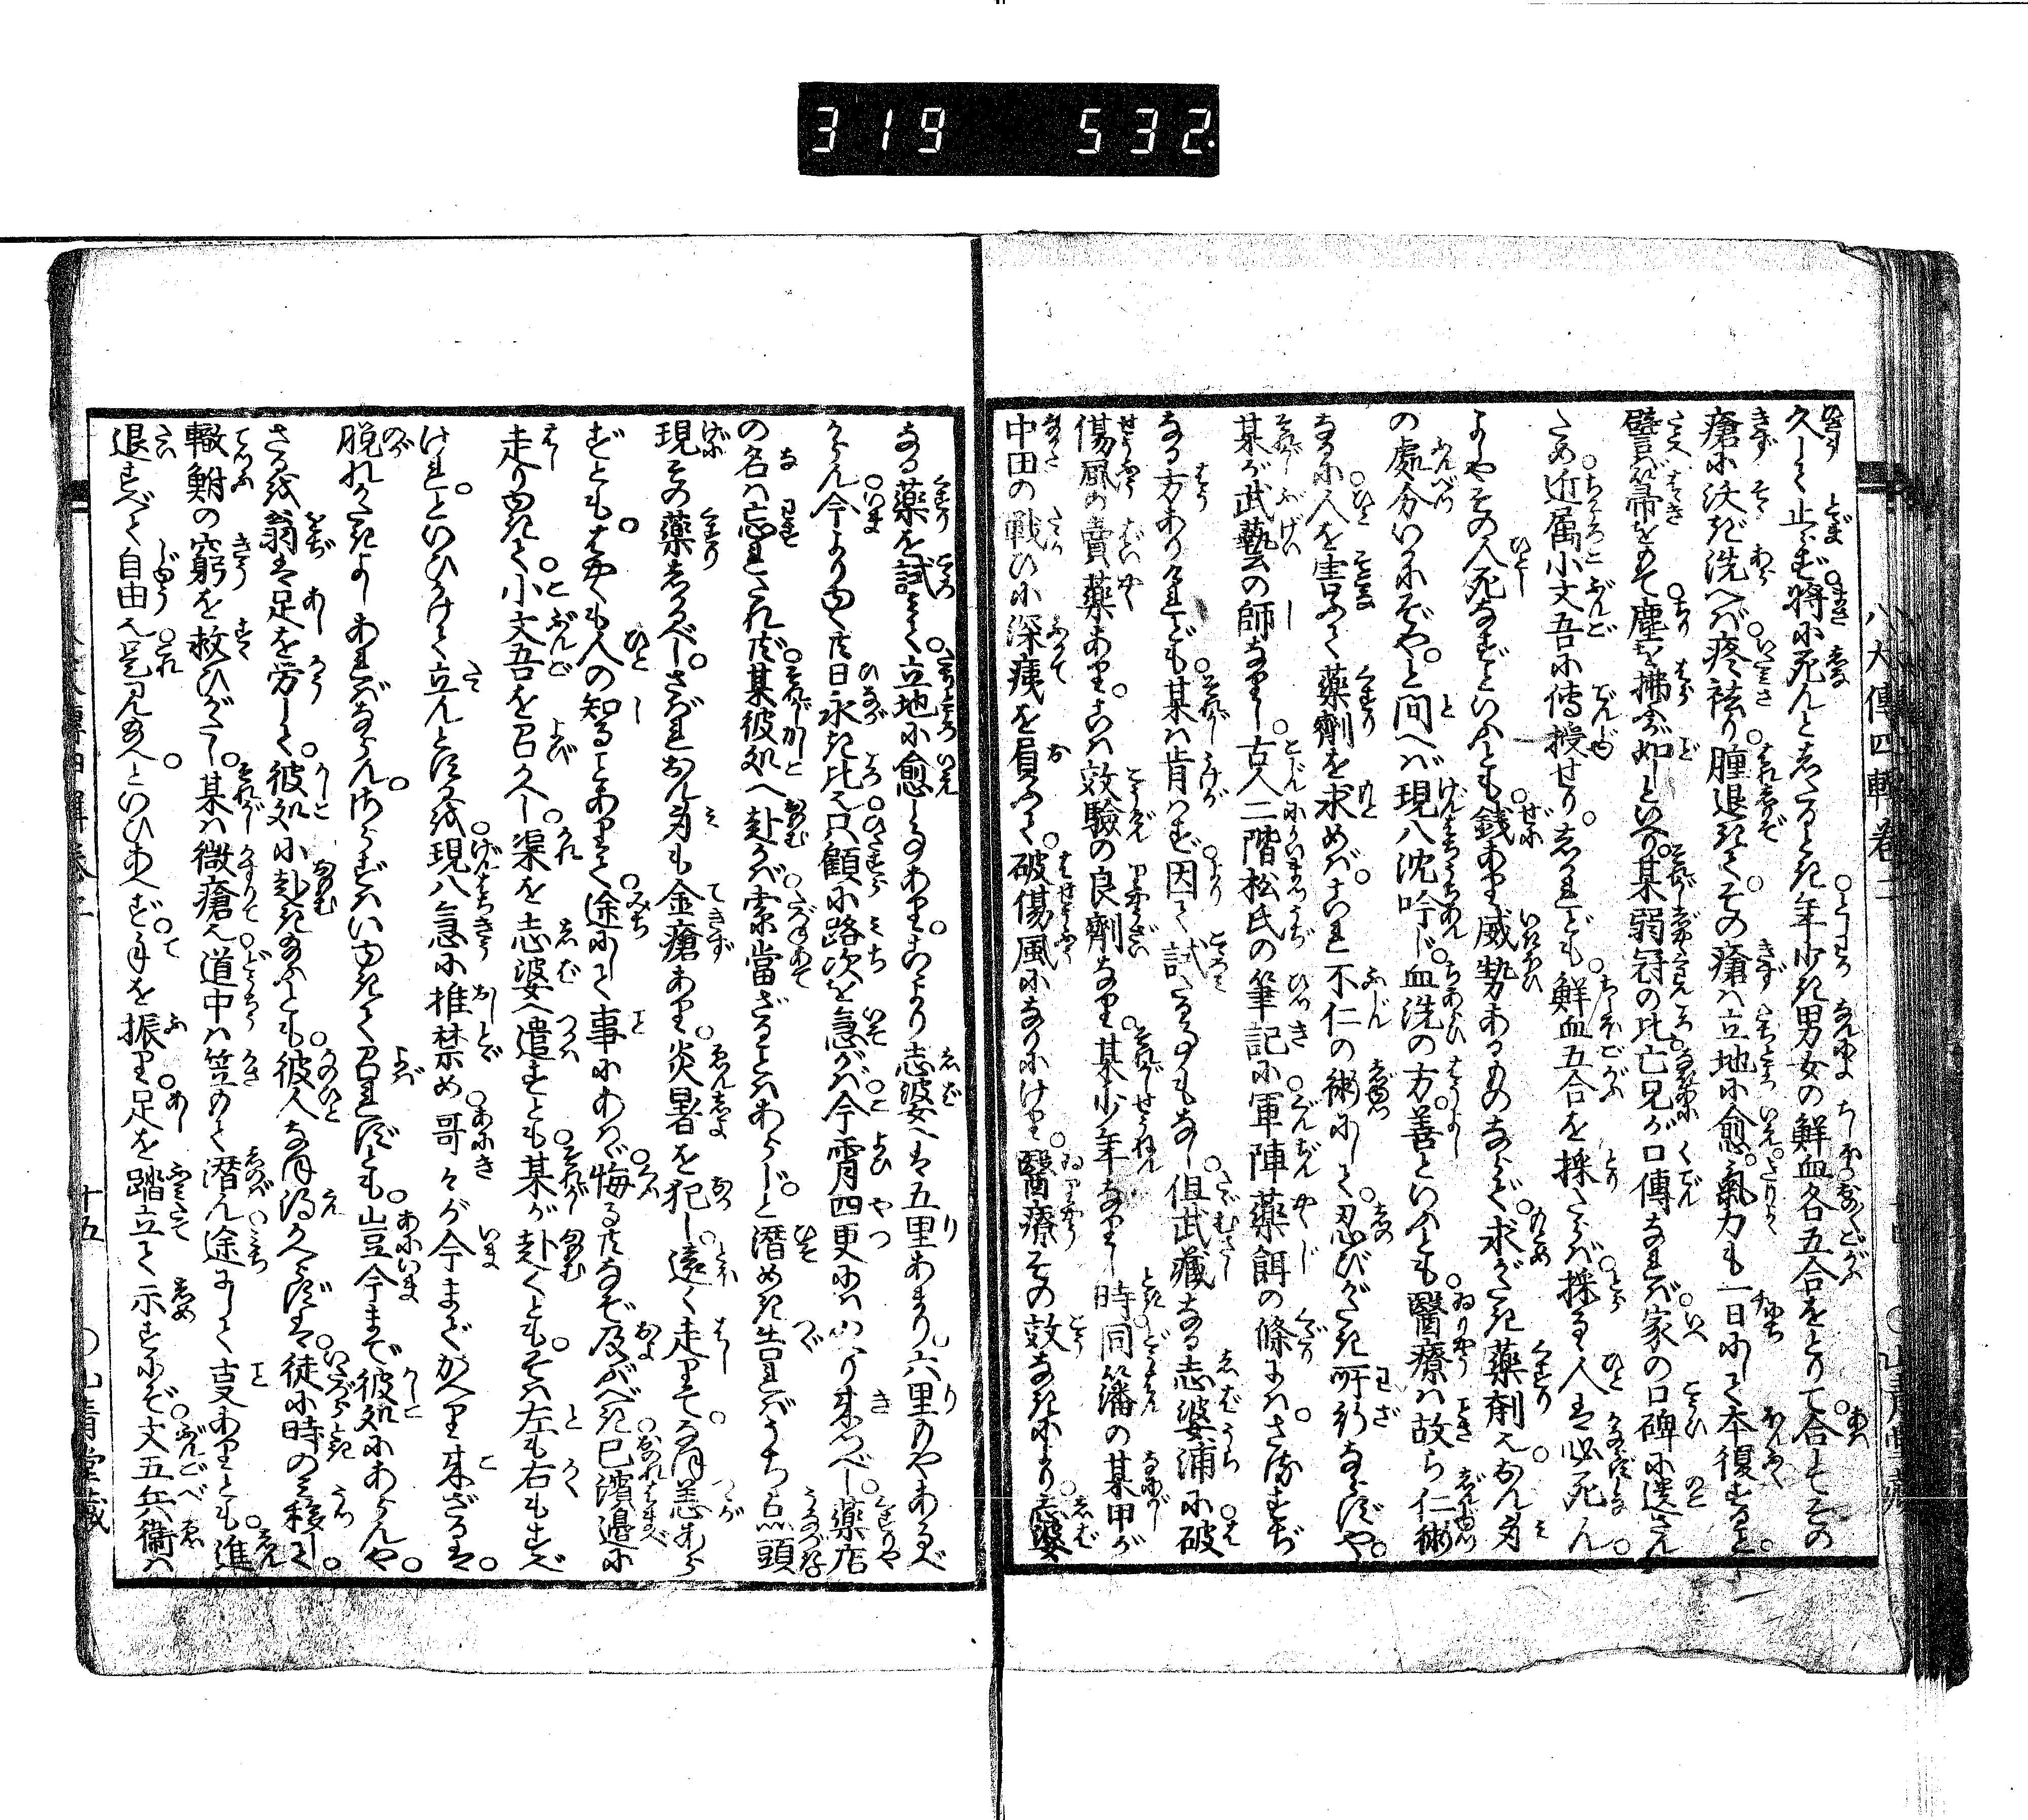 319 532
八犬傳四輯卷二
久しく止まず。將に死んとしたるとき。年少き男女の鮮血各五合をとりて。合してその
瘡に沃ぎ洗へば。疼袪り。腫退きて。その瘡は立地に愈。氣力も一日にして本復すること。
譬ば箒をもて。塵を拂ふが如しといへり。某弱冠の比。亡兄が口傳なれば。家の口碑に遺さん
ため。近属小文吾に傳授せり。しかれども。鮮血五合を採たらば。採るゝ人は必死なん。
よしやその人死なずといふとも。錢あり威勢あるものならで。求がたき藥剤也。おん身
の處分いかにぞや。と問へば現八沈吟じ。血洗の方。善といふとも。醫療は故ら仁術
なるに。人を害ふて藥劑を求めば。これ不仁の術にして。忍びがたき所行ならずや。
某が武藝の師なりし。古人二階松氏の筆記に。軍陣藥餌の條には。さるすぢ
なる方ありけれども。某は肯はず。因て試たる事もなし。但武藏なる志婆浦に。破
傷風の賣藥あり。こは效驗の良劑なり。某少年なりし時。同藩の某甲が
中田の戰ひに深痍を負ふて。破傷風になりにけり。醫療その效なきにより。志婆
○山青堂藏
なる藥を試みて。立地に愈し事あり。こゝより志婆へは五里あまり。六里にやあるべ
からん。今よりゆくに日永き比也。只顧に路次を急がば。今霄四更には。かへり來つべし。藥店
の名は忘れたれど。某彼処へ赴かば。索當ざることはあらじ。と潛めき告ればうち点頭
現その藥しかるべし。さばれおん身も金瘡あり。炎暑を犯し。遠く走りて。る恙あら
ずとも。はやくも人の知ることありて。途にして事にあはゞ。悔るになぞ及ぶべき。已濱邊に
走りゆきて。小文吾を召かへし。渠を志婆へ遣すとも。某が赴くとも。そは左も右もすべ
けれ。といひかけて立んとするを。現八急に推禁め。哥々が今までかへり來ざるは。
脱れがたきよしあればならん。たづねいゆきて召ればとも。豈今まで彼処にあらんや。
さるを翁は足を労して。彼処に赴き給ふとも。彼人なほ得かへらずは。徒に時のみ移して。
轍鮒の窮を救ひがたし。某は微瘡也。道中は笠もて潛ん。途にして吏ありとも。進
退すべて自由也。是見給へ。といひあへず。手を振り。足を踏立て示すにぞ。文五兵衞は
十五 ○山青堂藏